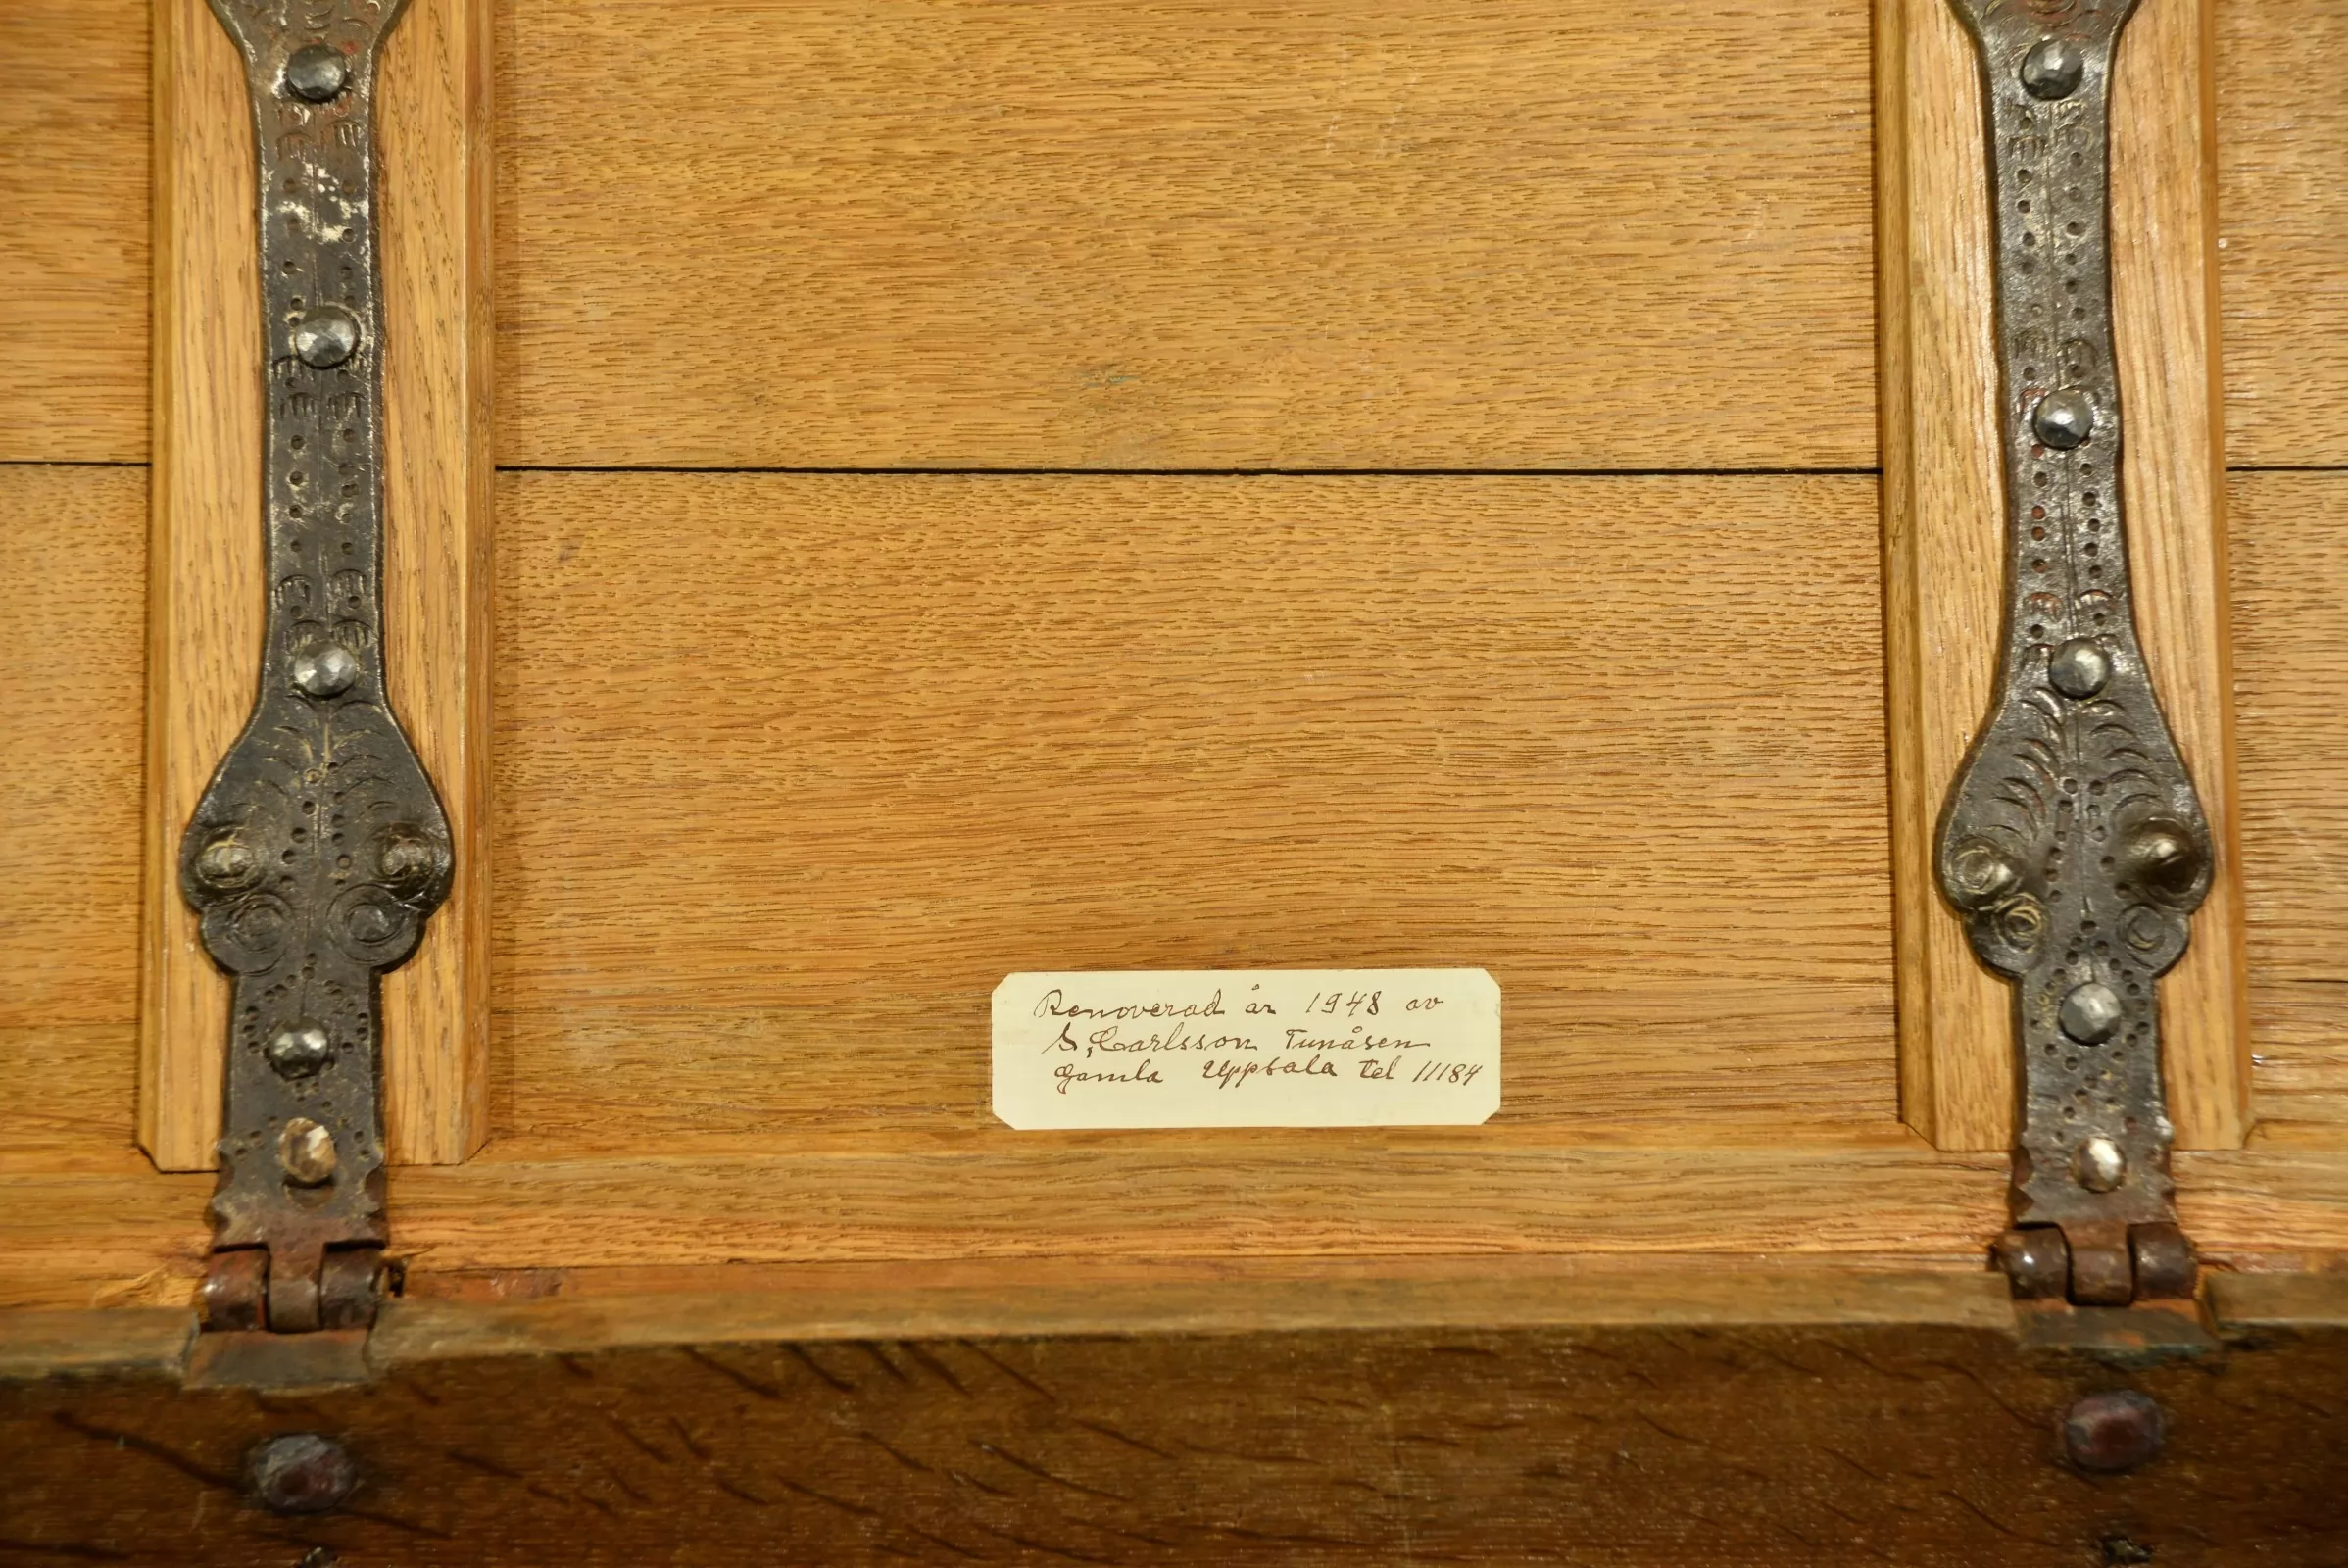 Renoverad år 1948 av
S, Carlsson Tunåsen
gamla Uppsala Tel 11184